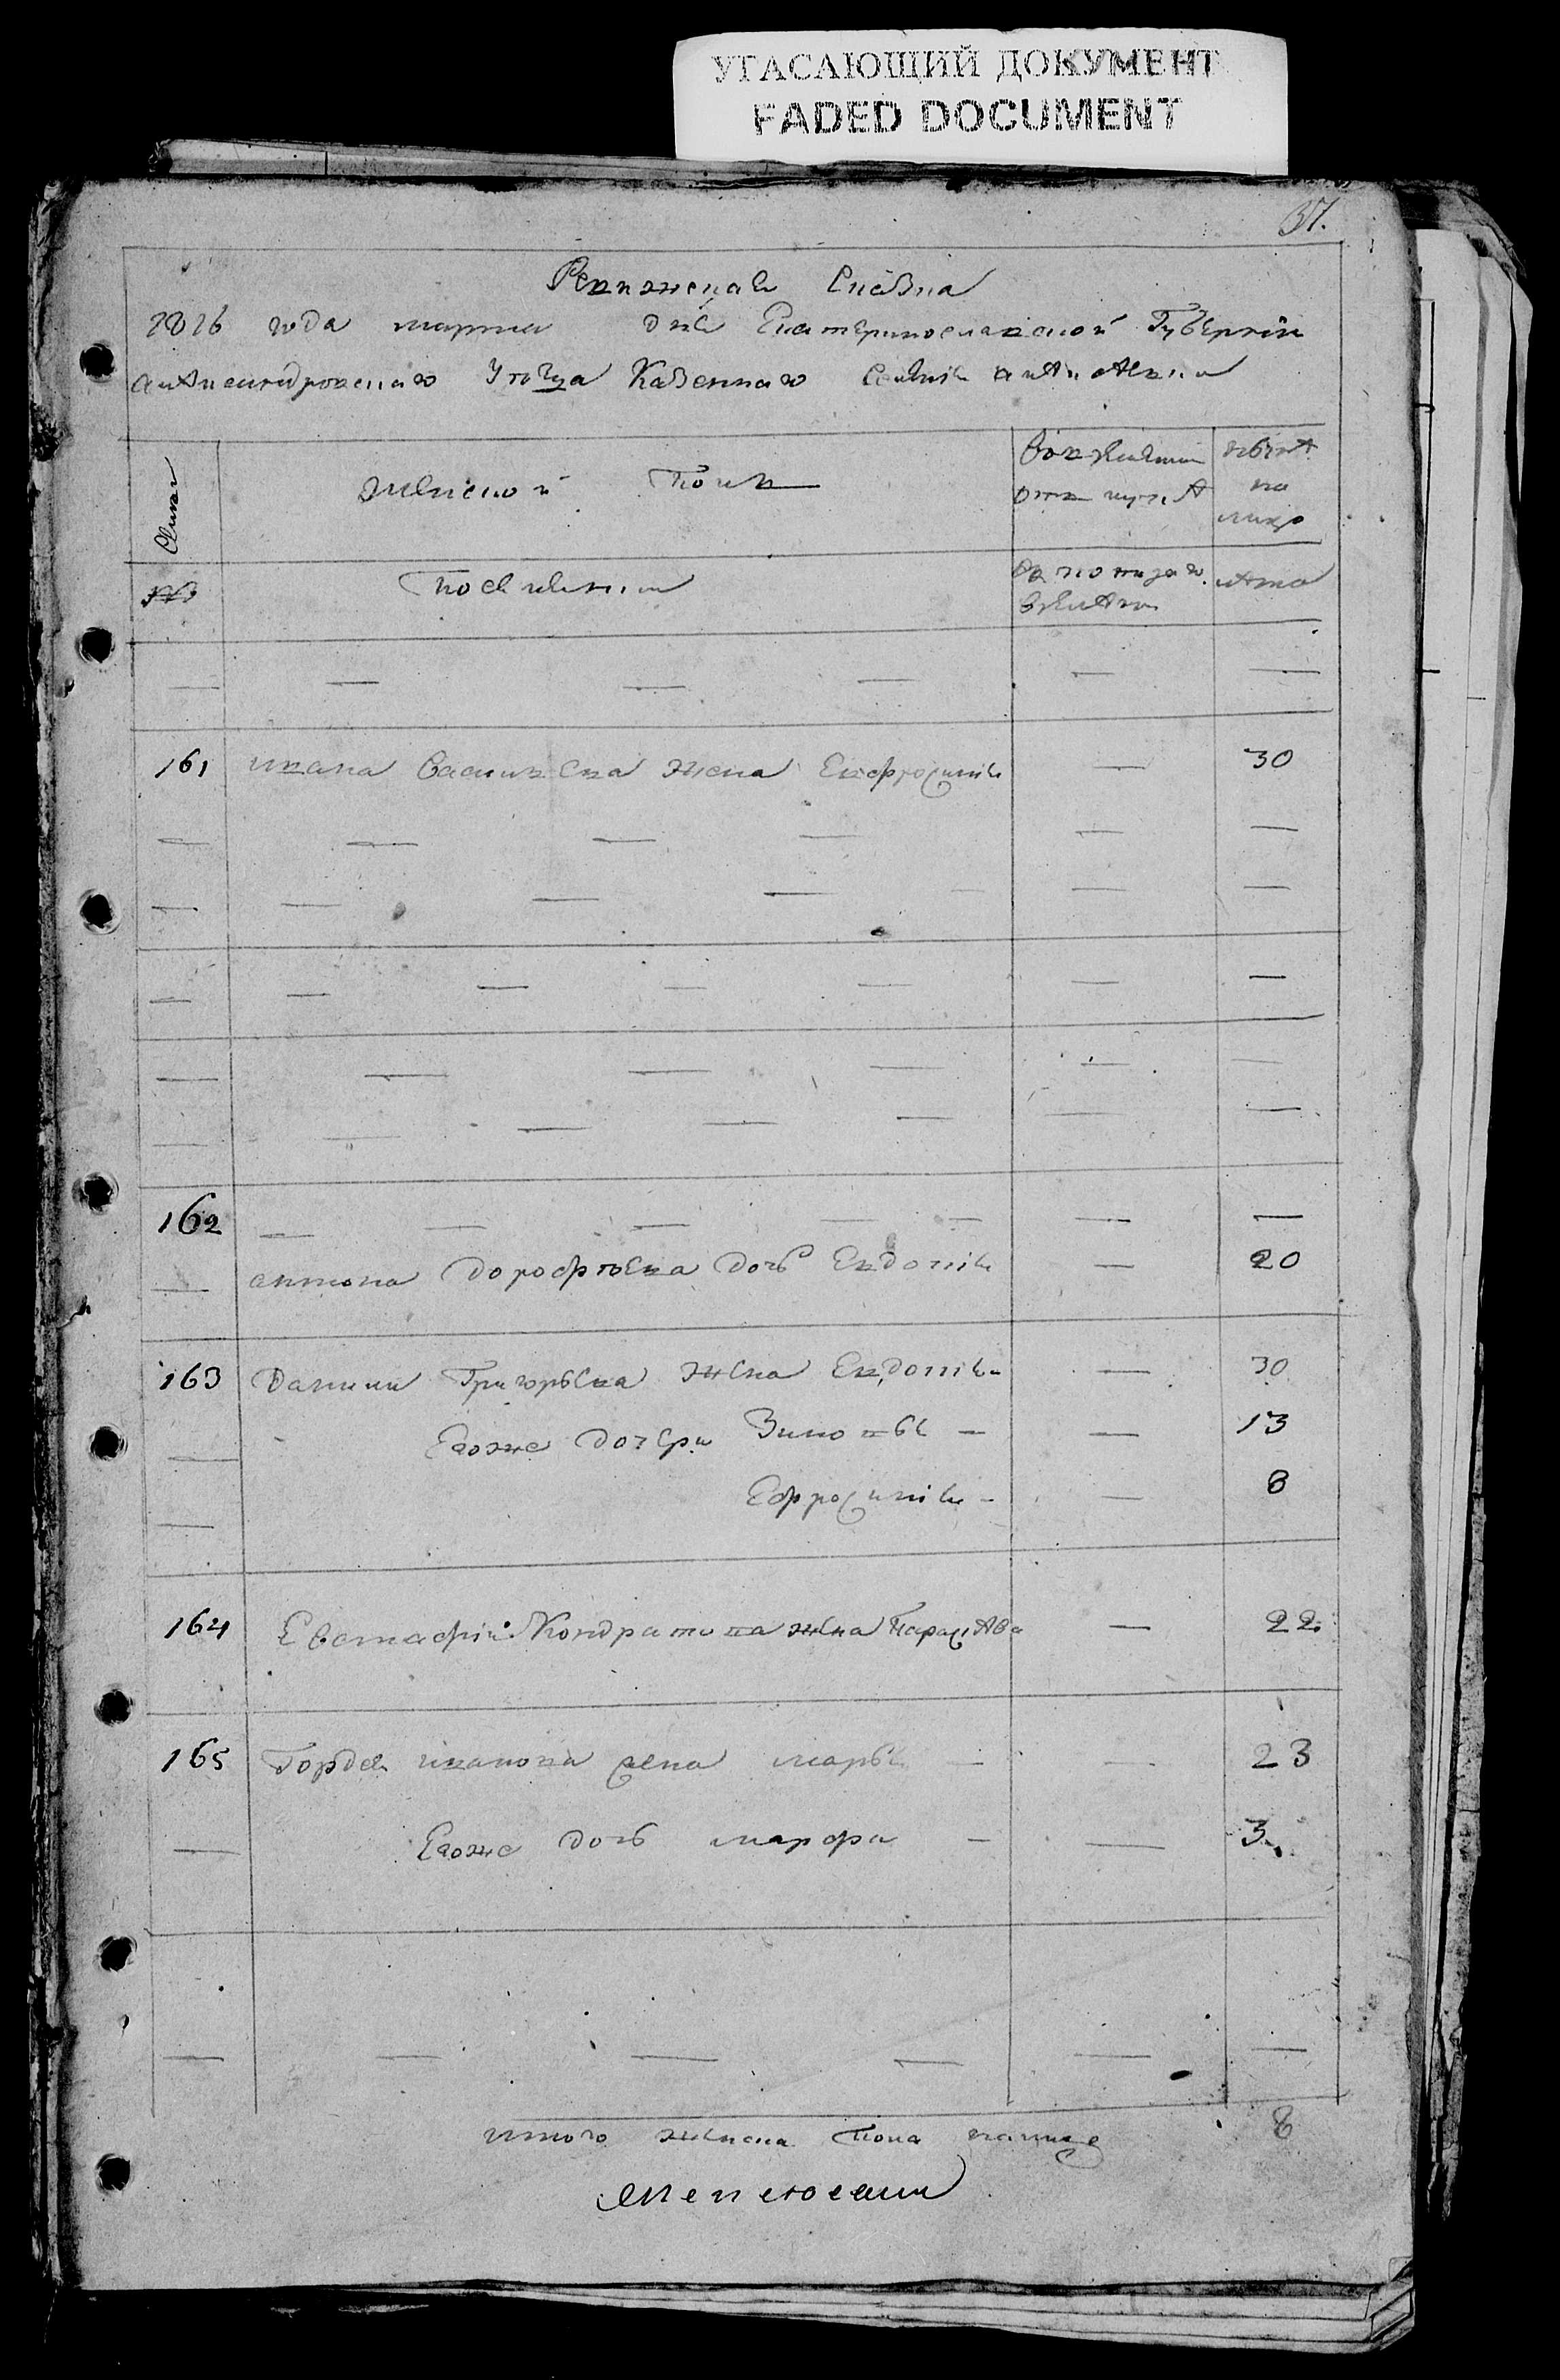 УГАСАЮЩИЙ ДОКУМЕНТ
FADED DOCUMENT
37.
Ревижская Скаска
1816 года марта дня Екатеринославской Губернии
александровскаго Уезда Казеннаго селения
женской полъ
во временной отлучке
ныне на лицо
Семьи
№
поселяни
съ котораго времяни
лета
161 ивана Васильева жена Евфросинія — 30
162
антона дорофѣева дочь Евдокия — 20
163 Данилы Григорьева жена Евдокия — 30
Егоже дочери Зиновья — 13
Ефросинія — 8
164 Евстафія Кондратова жена Параскева — 22
165 Гордея иванова жена марья — 23
Егоже дочь марфа — 3
итого женска пола налицо 8